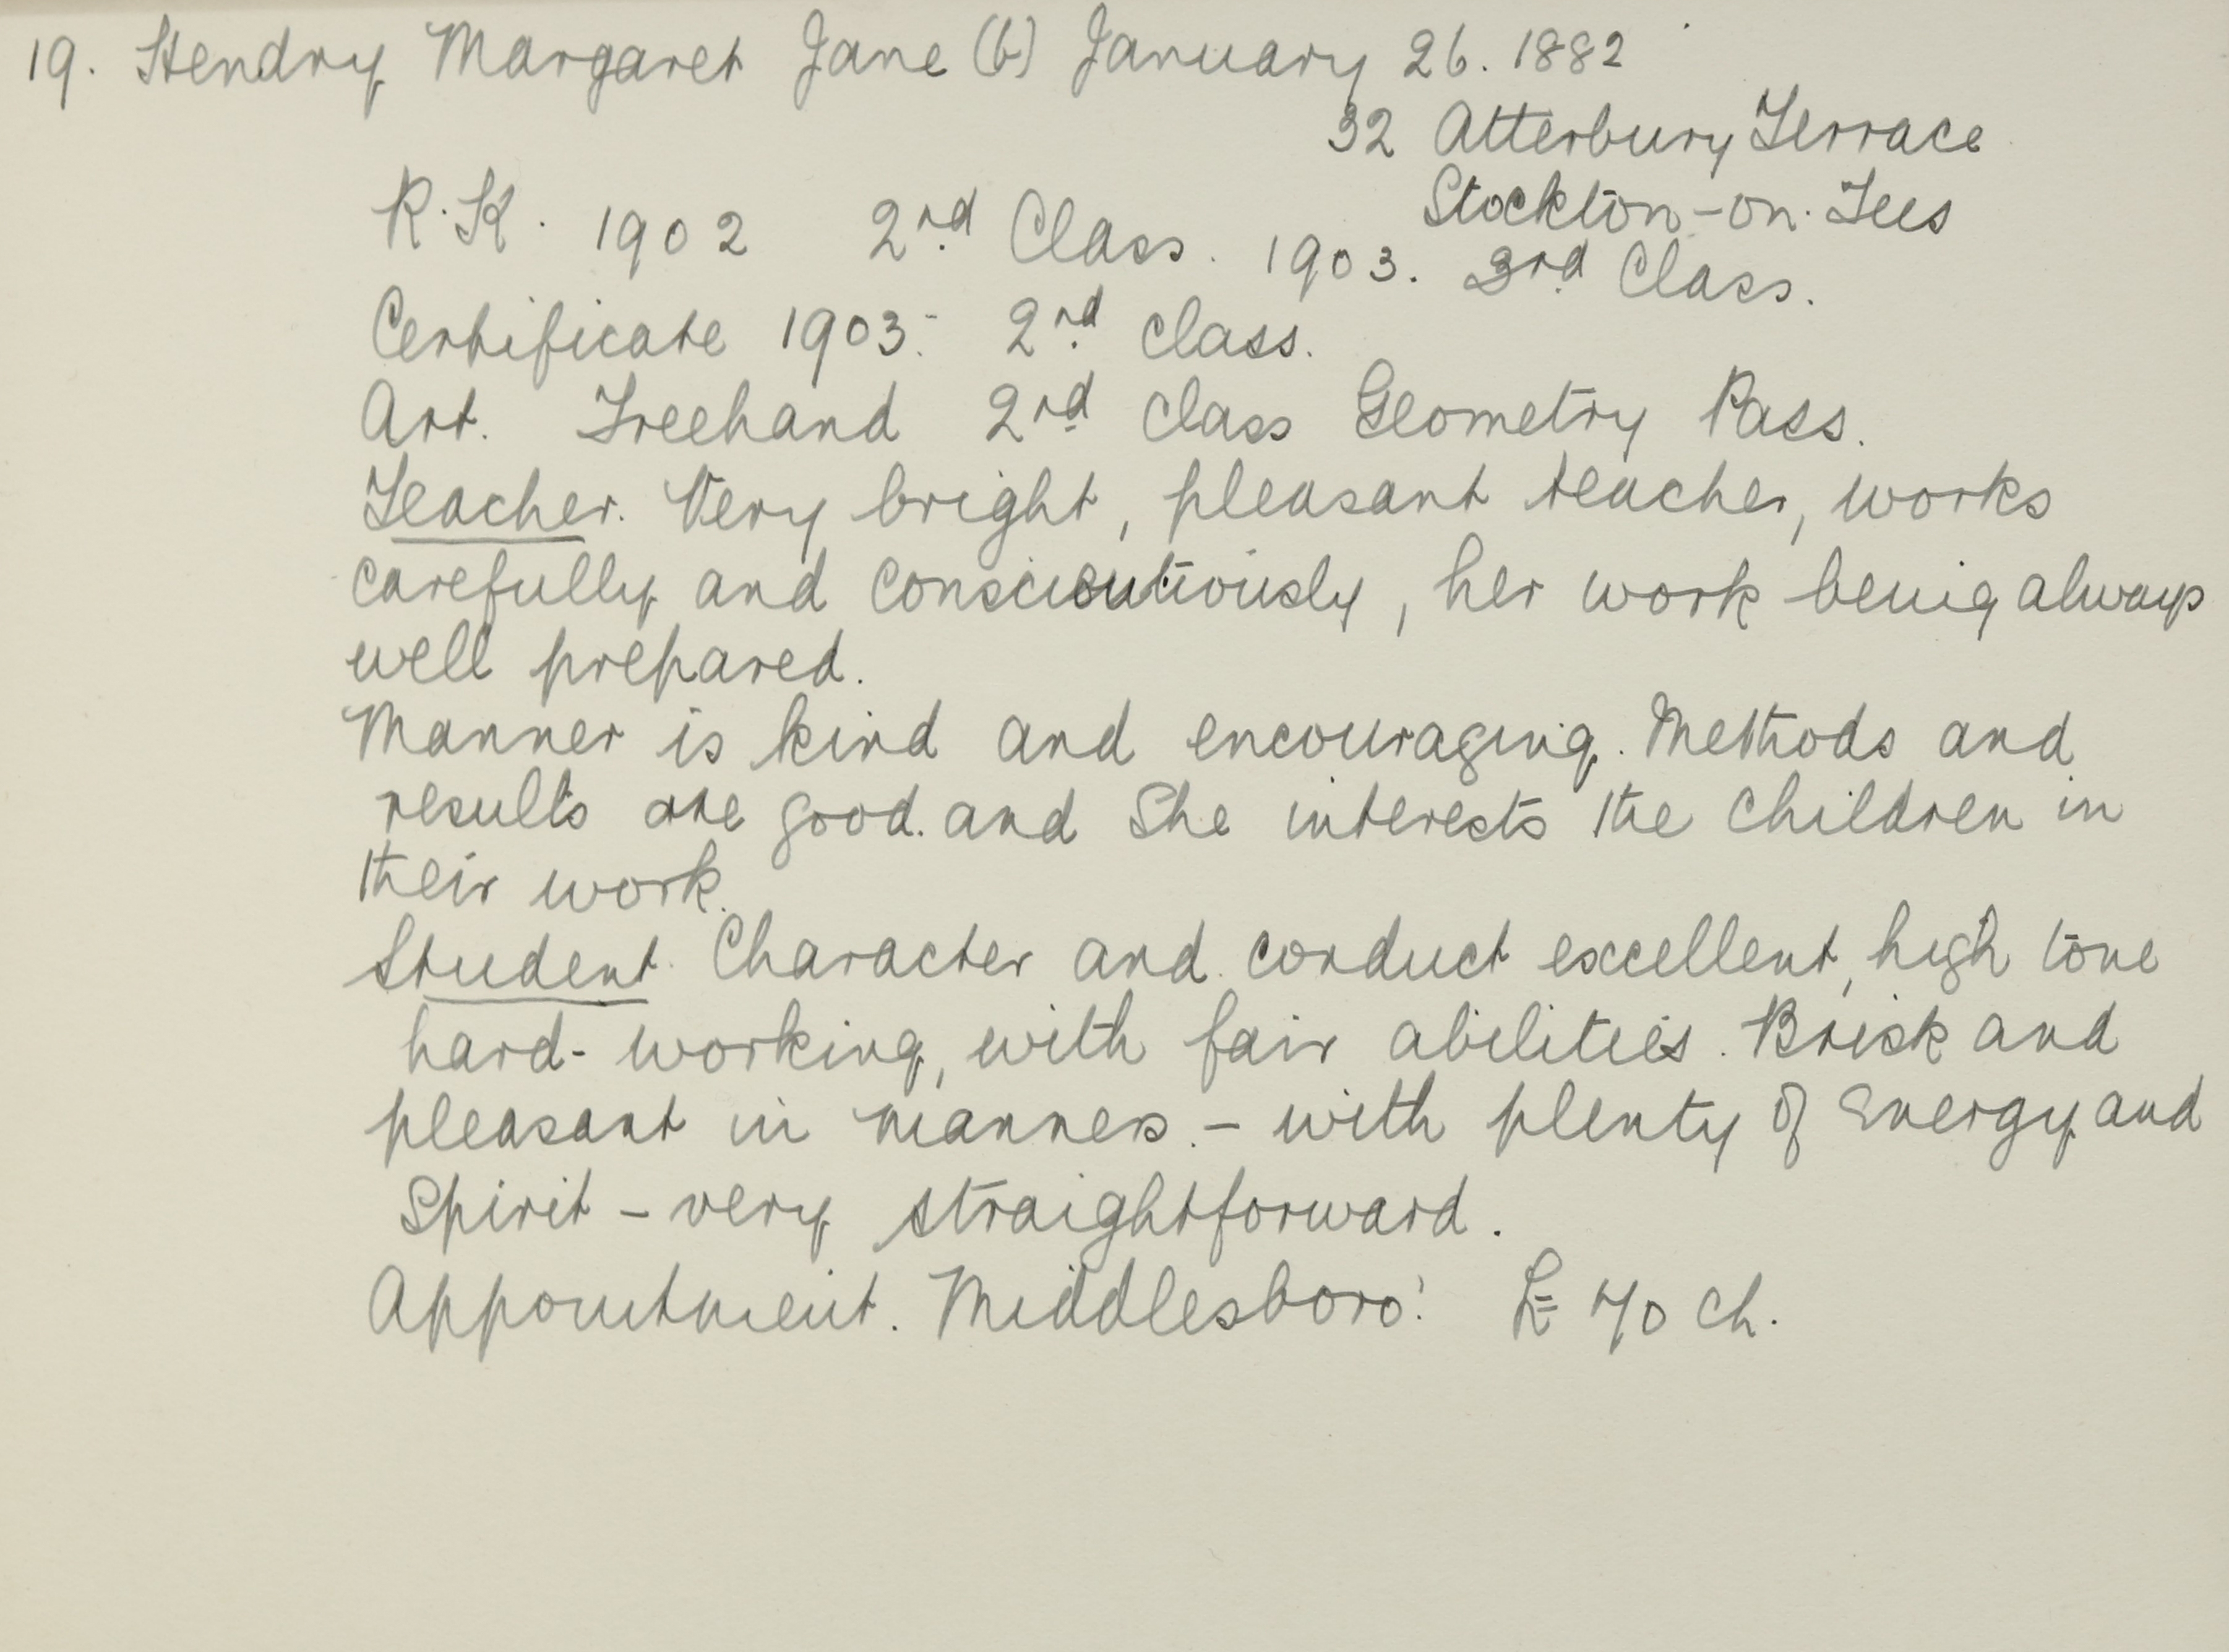 19. Hendry Margaret Jane (b) January 26. 1882
32 Atterbury Terrace
Stockton-on-Tees
R.K. 1902 2nd Class. 1903. 3rd Class.
Certificate 1903. 2nd Class.
Art. Freehand 2nd Class Geometry Pass.
Teacher. Very bright, pleasant teacher, works
carefully and conscientiously, her work being always
well prepared.
Manner is kind and encouraging. Methods and
results are good. and She interests the children in
their work.
Student. Character and conduct excellent, high tone
hard-working, with fair abilities. Brisk and
pleasant in manners. - with plenty of Energy and
Spirit - very straightforward.
Appointment. Middlesboro' £70 Ch.